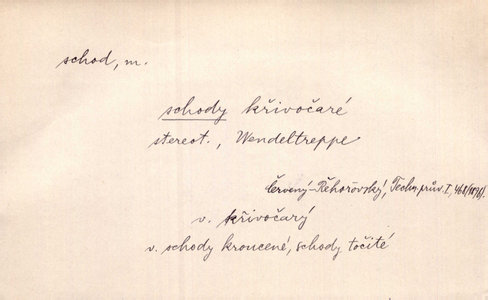 schod, m.
schody křivočaré
stereot., Wendeltreppe
Červený-Řehořovský, Techn. prův. I,
v. křivočarý
v. schody kroucené, schody točité